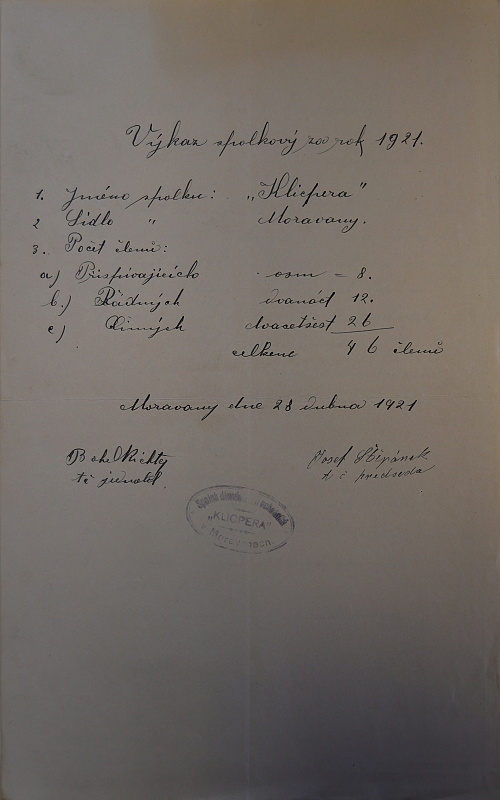 Výkaz spolkový za rok 1921.
1. Jméno spolku: „Klicpera"
2 Sídlo " Moravany.
3. Počet členů:
a) Přispívajících osm = 8.
b.) Řádných dvanáct 12.
c) Činných dvacetšest 26
celkem 46 členů
Moravany dne 28 dubna 1921
Josef Štěpánek
t č jednatel
t č předseda
„KLICPERA"